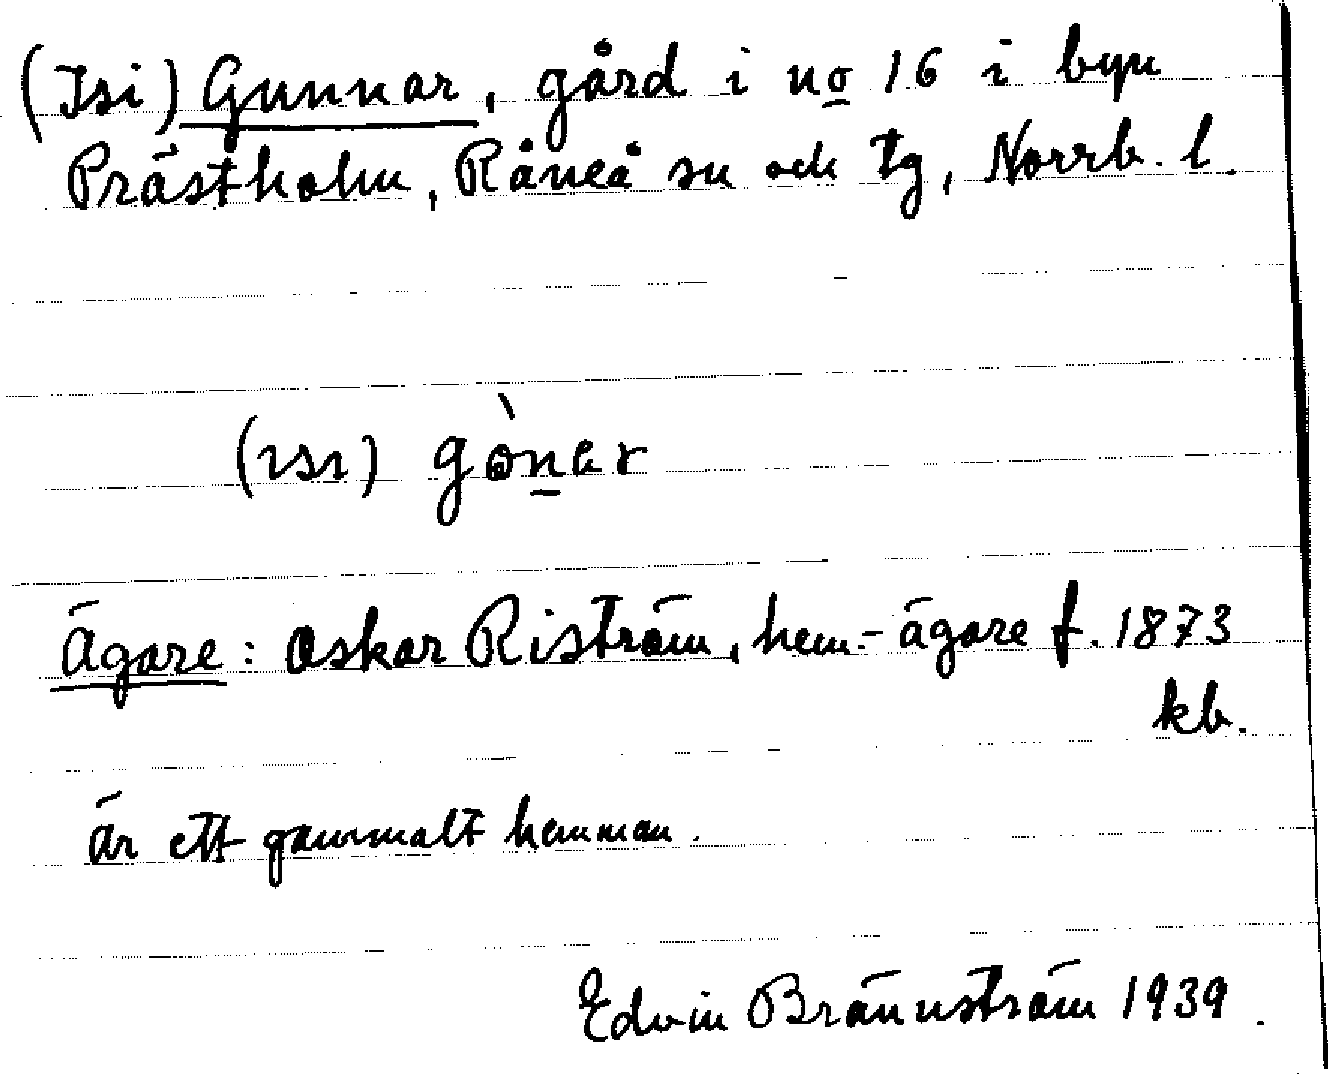 (Isi) Gunnar, gård i no 16 i byn
Prästholm, Råneå sn och tg, Norrb. l.
(ısı) gònar
Ägare: Oskar Riström, hem.-ägare f. 1873
kb.
är ett gammalt hemman.
Edvin Brännström 1939.